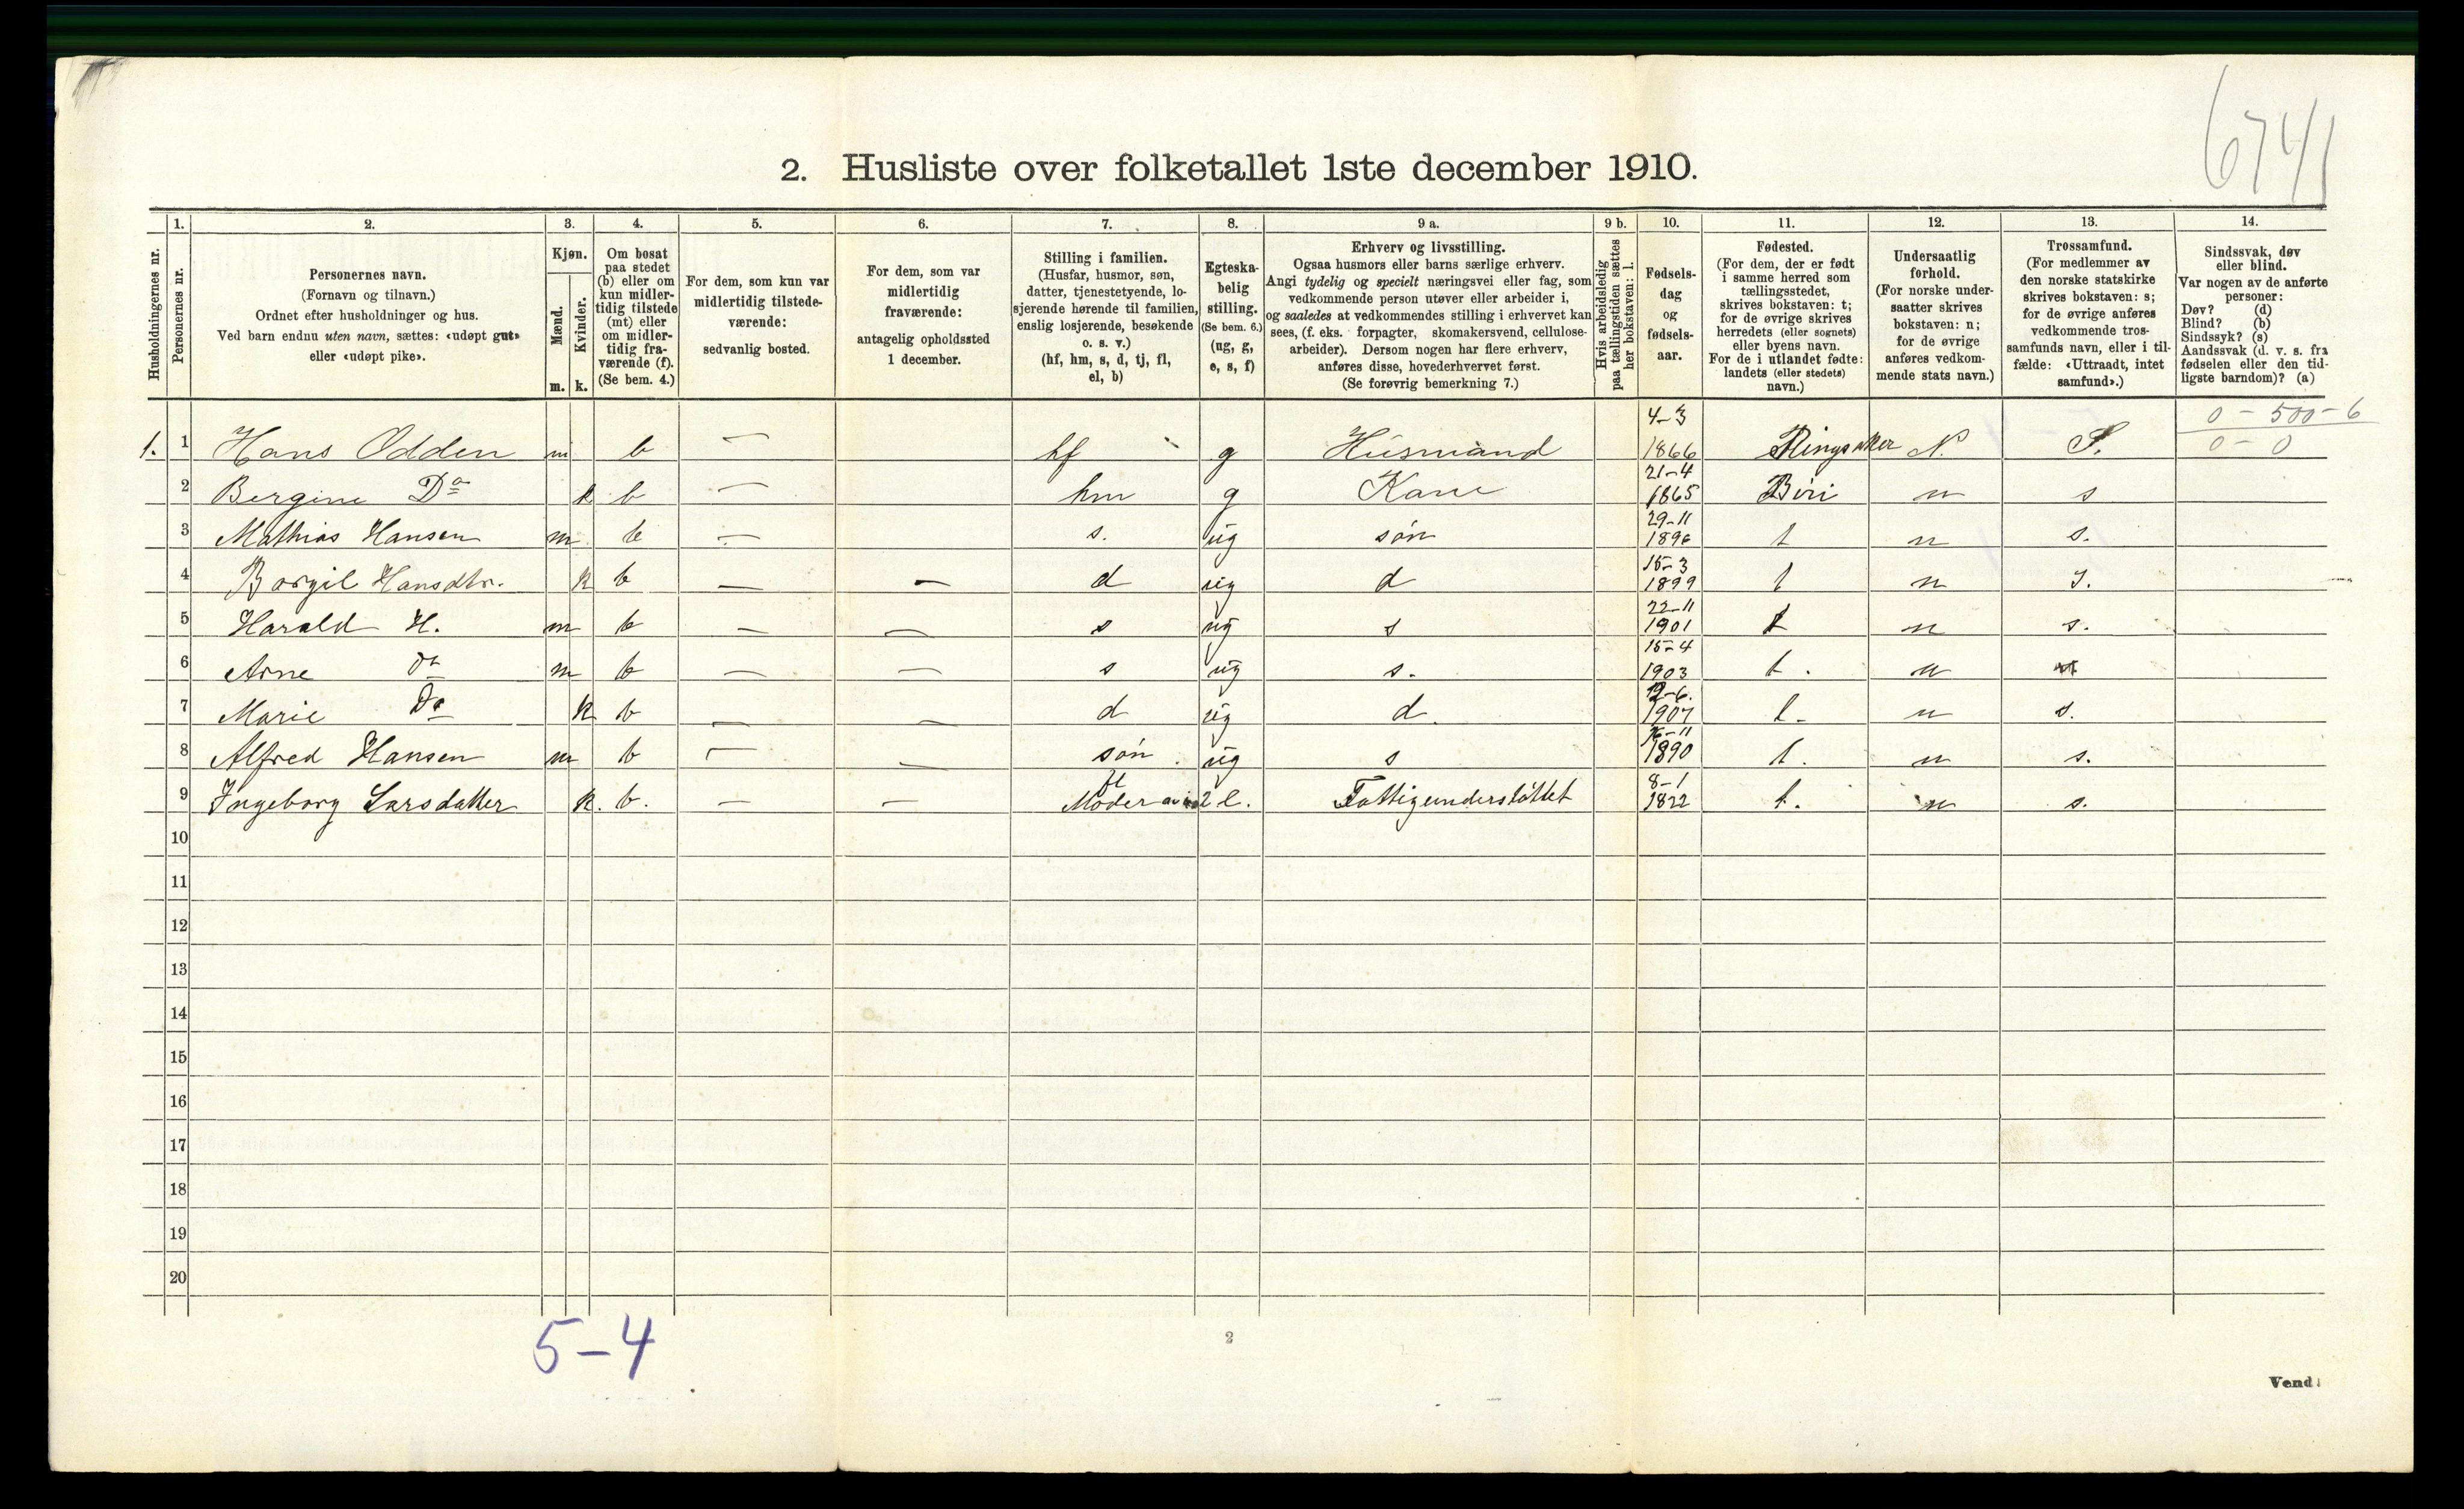 6741
2. Husliste over folketallet 1ste december 1910.
Husholdningernes nr.
1.
Personernes nr.
2.
Personernes navn.
(Fornavn og tilnavn.)
Ordnet efter husholdninger og hus.
Ved barn endnu uten navn, sættes: «udøpt gut»
eller «udøpt pike».
3.
Kjøn.
Mænd.
m.
Kvinder.
k.
4.
Om bosat
paa stedet
(b) eller om
kun midler-
tidig tilstede
(mt) eller
om midler-
tidig fra-
værende (f).
(Se bem. 4.)
5.
For dem, som kun var
midlertidig tilstede-
værende:
sedvanlig bosted.
6.
For dem, som var
midlertidig
fraværende:
antagelig opholdssted
1 december.
7.
Stilling i familien.
(Husfar, husmor, søn,
datter, tjenestetyende, lo-
sjerende hørende til familien,
enslig losjerende, besøkende
o. s. v.)
(hf, hm, s, d, tj, fl,
el, b)
8.
Egteska-
belig
stilling.
(Se bem. 6.)
(ug, g,
e, s, f)
9 a.
Erhverv og livsstilling.
Ogsaa husmors eller barns særlige erhverv.
Angi tydelig og specielt næringsvei eller fag, som
vedkommende person utøver eller arbeider i,
og saaledes at vedkommendes stilling i erhvervet kan
sees, (f. eks. forpagter, skomakersvend, cellulose-
arbeider). Dersom nogen har flere erhverv,
anføres disse, hovederhvervet først.
(Se forøvrig bemerkning 7.)
9 b.
Hvis arbeidsledig
paa tællingstiden sættes
her bokstaven: l.
10.
Fødsels-
dag
og
fødsels-
aar.
11.
Fødested.
(For dem, der er født
i samme herred som
tællingsstedet,
skrives bokstaven: t;
for de øvrige skrives
herredets (eller sognets)
eller byens navn.
For de i utlandet fødte:
landets (eller stedets)
navn.)
12.
Undersaatlig
forhold.
(For norske under-
saatter skrives
bokstaven: n;
for de øvrige
anføres vedkom-
mende stats navn.)
13.
Trossamfund.
(For medlemmer av
den norske statskirke
skrives bokstaven: s;
for de øvrige anføres
vedkommende tros-
samfunds navn, eller i til-
fælde: «Uttraadt, intet
samfund».)
14.
Sindssvak, døv
eller blind.
Var nogen av de anførte
personer:
Døv? (d)
Blind? (b)
Sindssyk? (s)
Aandssvak (d. v. s. fra
fødselen eller den tid-
ligste barndom)? (a)
0 - 500 - 6
0 - 0
1. 1 Hans Odden m b — hf g Husmand 4-3 1866 Ringsaker N. S.
2 Bergine Do k b — hm g Kone 21-4 1865 Biri n s
3 Mathias Hansen m b — s. ug søn 29-11 1896 t n s.
4 Borgil Hansdtr. k b — — d ug d 15-3 1899 t n s.
5 Harald H. m b — — s ug s 22-11 1901 t n s.
6 Arne do m b — — s ug s. 15-4 1903 t. n
7 Marie Do k b — — d ug d. 12-6. 1907 t. n s.
8 Alfred Hansen m b — — søn ug s 1890 t. n s.
9 Ingeborg Larsdatter k. b. — — Moder e. Fattigunderstøttet 8-1 1822 t. n s.
10
11
12
13
14
15
16
17
18
19
20
5-4
2
Vend!